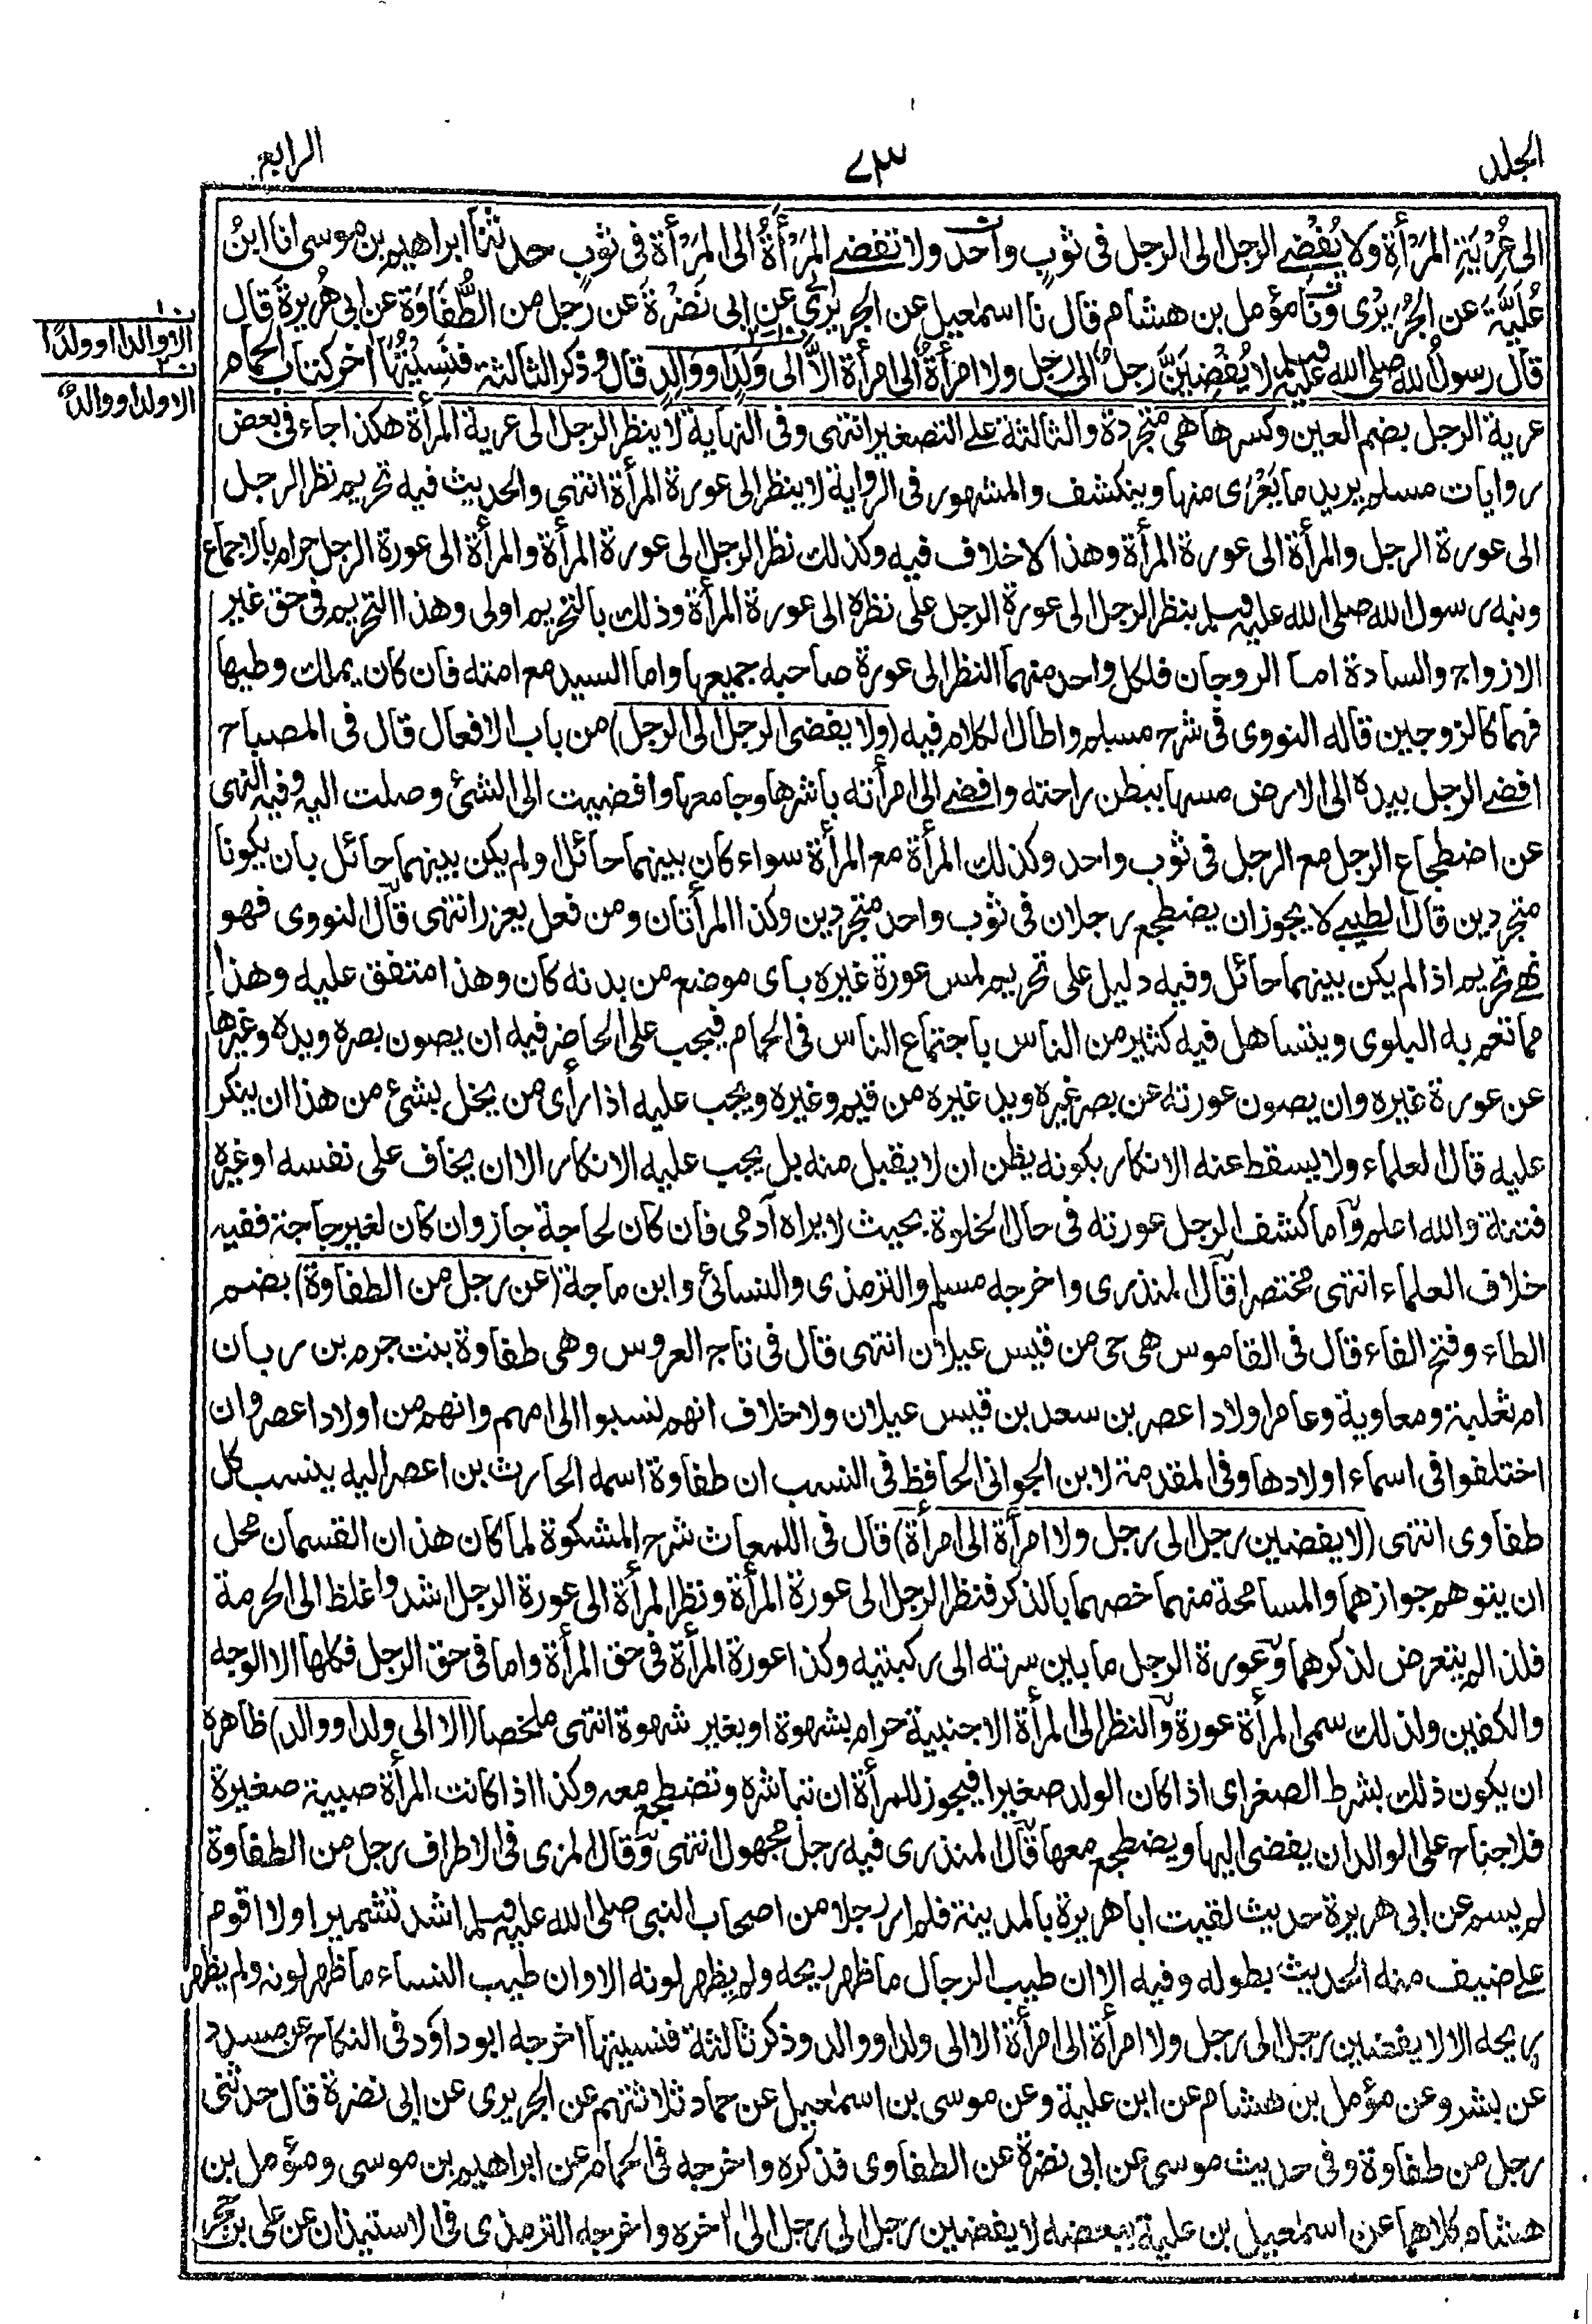 المجلد
٧٣
الرابع
الى عُرْيَةِ المَرْأَةِ ولا يُفْضِے الرجل الى الرجل فى ثوبٍ واحد ولا تفضے المَرْأَةُ الى المَرْأَة فى ثَوْبٍ حدثنا ابراهيم بن موسى انا ابنُ
عُلَيَّةَ عن الجُرَيْرِى ونا مؤمل بن هشام قال نا اسمعيل عن الجريرى عن ابى نَضْرَةَ عن رجل من الطُّفَاوَة عن ابى هُريرةَ قال
قال رسولُ الله صلى الله عليه وسلم لا يُفْضِيَنَّ رجلٌ الى رجل ولا امرأةٌ الى امرأة الَّا الى وَلَدٍ او وَالِدٍ قال وذكر الثالثة فنَسِيْتُهَا اخر كتاب الحمام
ن ١
الا والدا او ولدًا
ن ٢
الا ولدا او والدًا
عرية الرجل بضم العين وكسرها هى متجردة والثالثة على التصغير انتهى وفى النهاية لا ينظر الرجل الى عرية المرأة هكذا جاء فى بعض
روايات مسلم يريد ما يَعْرَى منها وينكشف والمشهور فى الرواية لا ينظر الى عورة المرأة انتهى والحديث فيه تحريم نظر الرجل
الى عورة الرجل والمرأة الى عورة المرأة وهذا لا خلاف فيه وكذلك نظر الرجل الى عورة المرأة والمرأة الى عورة الرجل حرام بالاجماع
ونبه رسول الله صلى الله عليه وسلم بنظر الرجل الى عورة الرجل على نظره الى عورة المرأة وذلك بالتحريم اولى وهذا التحريم فى حق غير
الازواج والسادة اما الزوجان فلكل واحد منهما النظر الى عورة صاحبه جميعها واما السيد مع امته فان كان يملك وطيها
فهما كالزوجين قاله النووى فى شرح مسلم واطال الكلام فيه (ولا يفضى الرجل الى الرجل) من باب الافعال قال فى المصباح
افضے الرجل بيده الى الارض مسها ببطن راحته وافضے الى امرأته باشرها وجامعها وافضيت الى الشئ وصلت اليه وفيه النهى
عن اضطجاع الرجل مع الرجل فى ثوب واحد وكذلك المرأة مع المرأة سواء كان بينهما حائل او لم يكن بينهما حائل بان يكونا
متجردين قال الطيبے لا يجوز ان يضطجع رجلان فى ثوب واحد متجردين وكذا المرأتان ومن فعل يعزر انتهى قال النووى فهو
نهى تحريم اذا لم يكن بينهما حائل وفيه دليل على تحريم لمس عورة غيره باى موضع من بدنه كان وهذا متفق عليه وهذا
مما تعم به البلوى ويتساهل فيه كثير من الناس باجتماع الناس فى الحمام فيجب على الحاضر فيه ان يصون بصره ويده وغيرها
عن عورة غيره وان يصون عورته عن بصر غيره ويد غيره من قيم وغيره ويجب عليه اذا رأى من يخل بشئ من هذا ان ينكر
عليه قال العلماء ولا يسقط عنه الانكار بكونه يظن ان لا يقبل منه بل يجب عليه الانكار الا ان يخاف على نفسه او غيره
فتنة والله اعلم واما كشف الرجل عورته فى حال الخلوة بحيث لا يراه آدمى فان كان لحاجة جاز وان كان لغير حاجة ففيه
خلاف العلماء انتهى مختصرا قال المنذرى واخرجه مسلم والترمذى والنسائى وابن ماجة (عن رجل من الطفاوة) بضم
الطاء وفتح الفاء قال فى القاموس هى حى من قيس عيلان انتهى قال فى تاج العروس وهى طفاوة بنت جرم بن ربان
ام ثعلبة ومعاوية وعامر اولاد اعصر بن سعد بن قيس عيلان ولا خلاف انهم نسبوا الى امهم وانهم من اولاد اعصر وان
اختلفوا فى اسماء اولادها وفى المقدمة لابن الجوانى الحافظ فى النسب ان طفاوة اسمه الحارث بن اعصر اليه ينسب كل
طفاوى انتهى (لا يفضين رجل الى رجل ولا امرأة الى امرأة) قال فى اللمعات شرح المشكوة لما كان هذان القسمان محل
ان يتوهم جوازهما والمسامحة منهما خصهما بالذكر فنظر الرجل الى عورة المرأة ونظر المرأة الى عورة الرجل اشد واغلظ الى الحرمة
فلذا لم يتعرض لذكرهما وعورة الرجل ما بين سرته الى ركبتيه وكذا عورة المرأة فى حق المرأة واما فى حق الرجل فكلها الا الوجه
والكفين ولذلك سمى المرأة عورة والنظر الى المرأة الاجنبية حرام بشهوة او بغير شهوة انتهى ملخصا (الا الى ولد او والد) ظاهره
ان يكون ذلك بشرط الصغر اى اذا كان الولد صغيرا فيجوز للمرأة ان تباشره وتضطجع معه وكذا اذا كانت المرأة صبية صغيرة
فلا جناح على الوالد ان يفضى اليها ويضطجع معها قال المنذرى فيه رجل مجهول انتهى وقال المزى فى الاطراف رجل من الطفاوة
لم يسم عن ابى هريرة حديث لقيت ابا هريرة بالمدينة فلم ار رجلا من اصحاب النبى صلى الله عليه وسلم اشد تشميرا ولا اقوم
على ضيف منه الحديث بطوله وفيه الا ان طيب الرجال ما ظهر ريحه ولم يظهر لونه الا وان طيب النساء ما ظهر لونه ولم يظهر
ريحه الا لا يفضين رجل الى رجل ولا امرأة الى امرأة الا الى ولد او والد وذكر ثالثة فنسيتها اخرجه ابو داؤد فى النكاح عن مسدد
عن بشر وعن مؤمل بن هشام عن ابن علية وعن موسى بن اسمعيل عن حماد ثلاثتهم عن الجريرى عن ابى نضرة قال حدثنى
رجل من طفاوة وفى حديث موسى عن ابى نضرة عن الطفاوى فذكره واخرجه فى الحمام عن ابراهيم بن موسى ومؤمل بن
هشام كلاهما عن اسمعيل بن علية ببعضه لا يفضين رجل الى رجل الى اخره واخرجه الترمذى فى الاستيذان عن على بن حجر